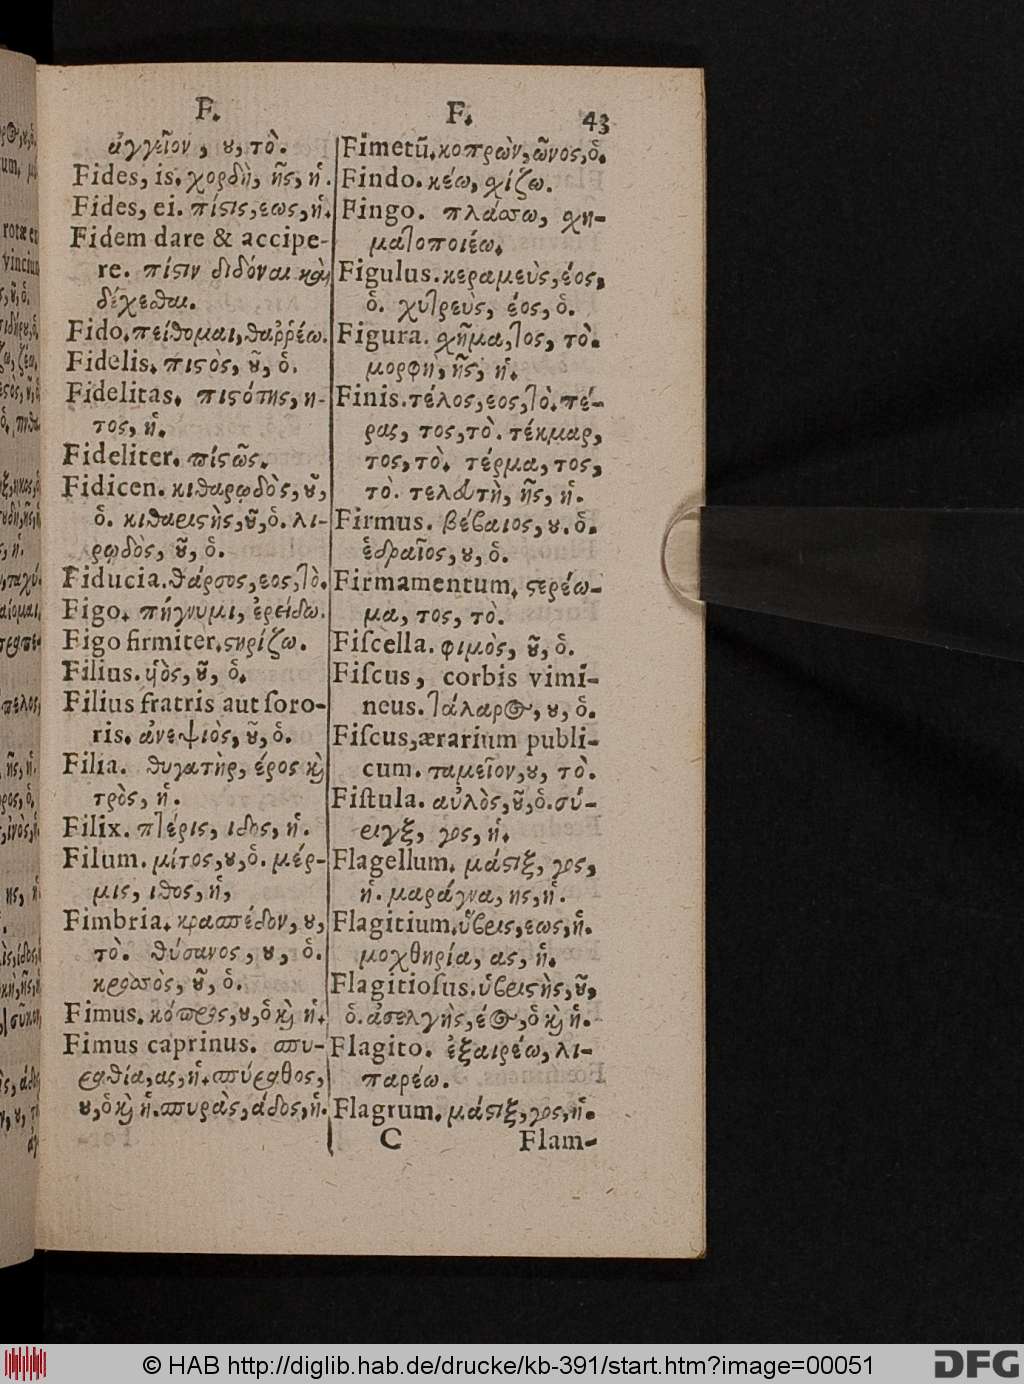 F.
ἀγγεῖον, ου, τὸ.
Fides, is. χορδὴ, ῆς, ἡ.
Fides, ei. πίστις, εως, ἡ.
Fidem dare & accipe-
re. πίστιν διδόναι καὶ
δέχεσθαι.
Fido. πείθομαι, θαῤῥέω.
Fidelis. πιστὸς, οῦ, ὁ.
Fidelitas. πιστότης, η-
τος, ἡ.
Fideliter. πίστῶς.
Fidicen. κιθαρῳδὸς, οῦ,
ὁ. κιθαριστὴς, οῦ, ὁ. λι-
ρῳδὸς, οῦ, ὁ.
Fiducia. θάρσος, εος, τὸ.
Figo. πήγνυμι, ἐρείδω.
Figo firmiter. στηρίζω.
Filius. ὑὸς, οῦ, ὁ.
Filius fratris aut ſoro-
ris. ἀνεψιὸς, οῦ, ὁ.
Filia. θυγατὴρ, έρος καὶ
τρὸς, ἡ.
Filix. πτέρις, ιδος, ἡ.
Filum. μίτος, ου, ὁ. μέρ-
μις, ιθος, ἡ,
Fimbria. κρασπέδον, ου,
τὸ. θύσανος, ου, ὁ.
κροσσὸς, οῦ, ὁ.
Fimus. κόπρος, ου, ὁ καὶ ἡ.
Fimus caprinus. σπυ-
ραθία, ας, ἡ. σπύραθος,
ου, ὁ καὶ ἡ. σπυρὰς, άδος, ἡ.
F. 43
Fimetũ. κοπρὼν, ῶνος, ὁ.
Findo. κέω, σχίζω.
Fingo. πλάσσω, σχη-
ματοποιέω.
Figulus. κεραμεὺς, έος,
ὁ. χυτρεὺς, έος, ὁ.
Figura. σχῆμα, τος, τὸ.
μορφὴ, ῆς, ἡ.
Finis. τέλος, εος, τὸ. πέ-
ρας, τος, τὸ. τέκμαρ,
τος, τὸ. τέρμα, τος,
τὸ. τελευτὴ, ῆς, ἡ.
Firmus. βέβαιος, ου. ὁ.
ἑδραῖος, ου, ὁ.
Firmamentum. στερέω-
μα, τος, τὸ.
Fiſcella. φιμὸς, οῦ, ὁ.
Fiſcus, corbis vimi-
neus. τάλαρος, ου, ὁ.
Fiſcus, ærarium publi-
cum. ταμεῖον, ου, τὸ.
Fiſtula. αὐλὸς, οῦ, ὁ. σύ-
ριγξ, γος, ἡ.
Flagellum. μάστιξ, γος,
ἡ. μαράγνα, ης, ἡ.
Flagitium. ὕβρις, εως, ἡ.
μοχθηρία, ας, ἡ.
Flagitioſus. ὑβριστὴς, οῦ,
ὁ. ἀσελγὴς, έος, ὁ καὶ ἡ.
Flagito. ἐξαιρέω, λι-
παρέω.
Flagrum. μάστιξ, γος, ἡ.
C Flam-
© HAB http://diglib.hab.de/drucke/kb-391/start.htm?image=00051
DFG